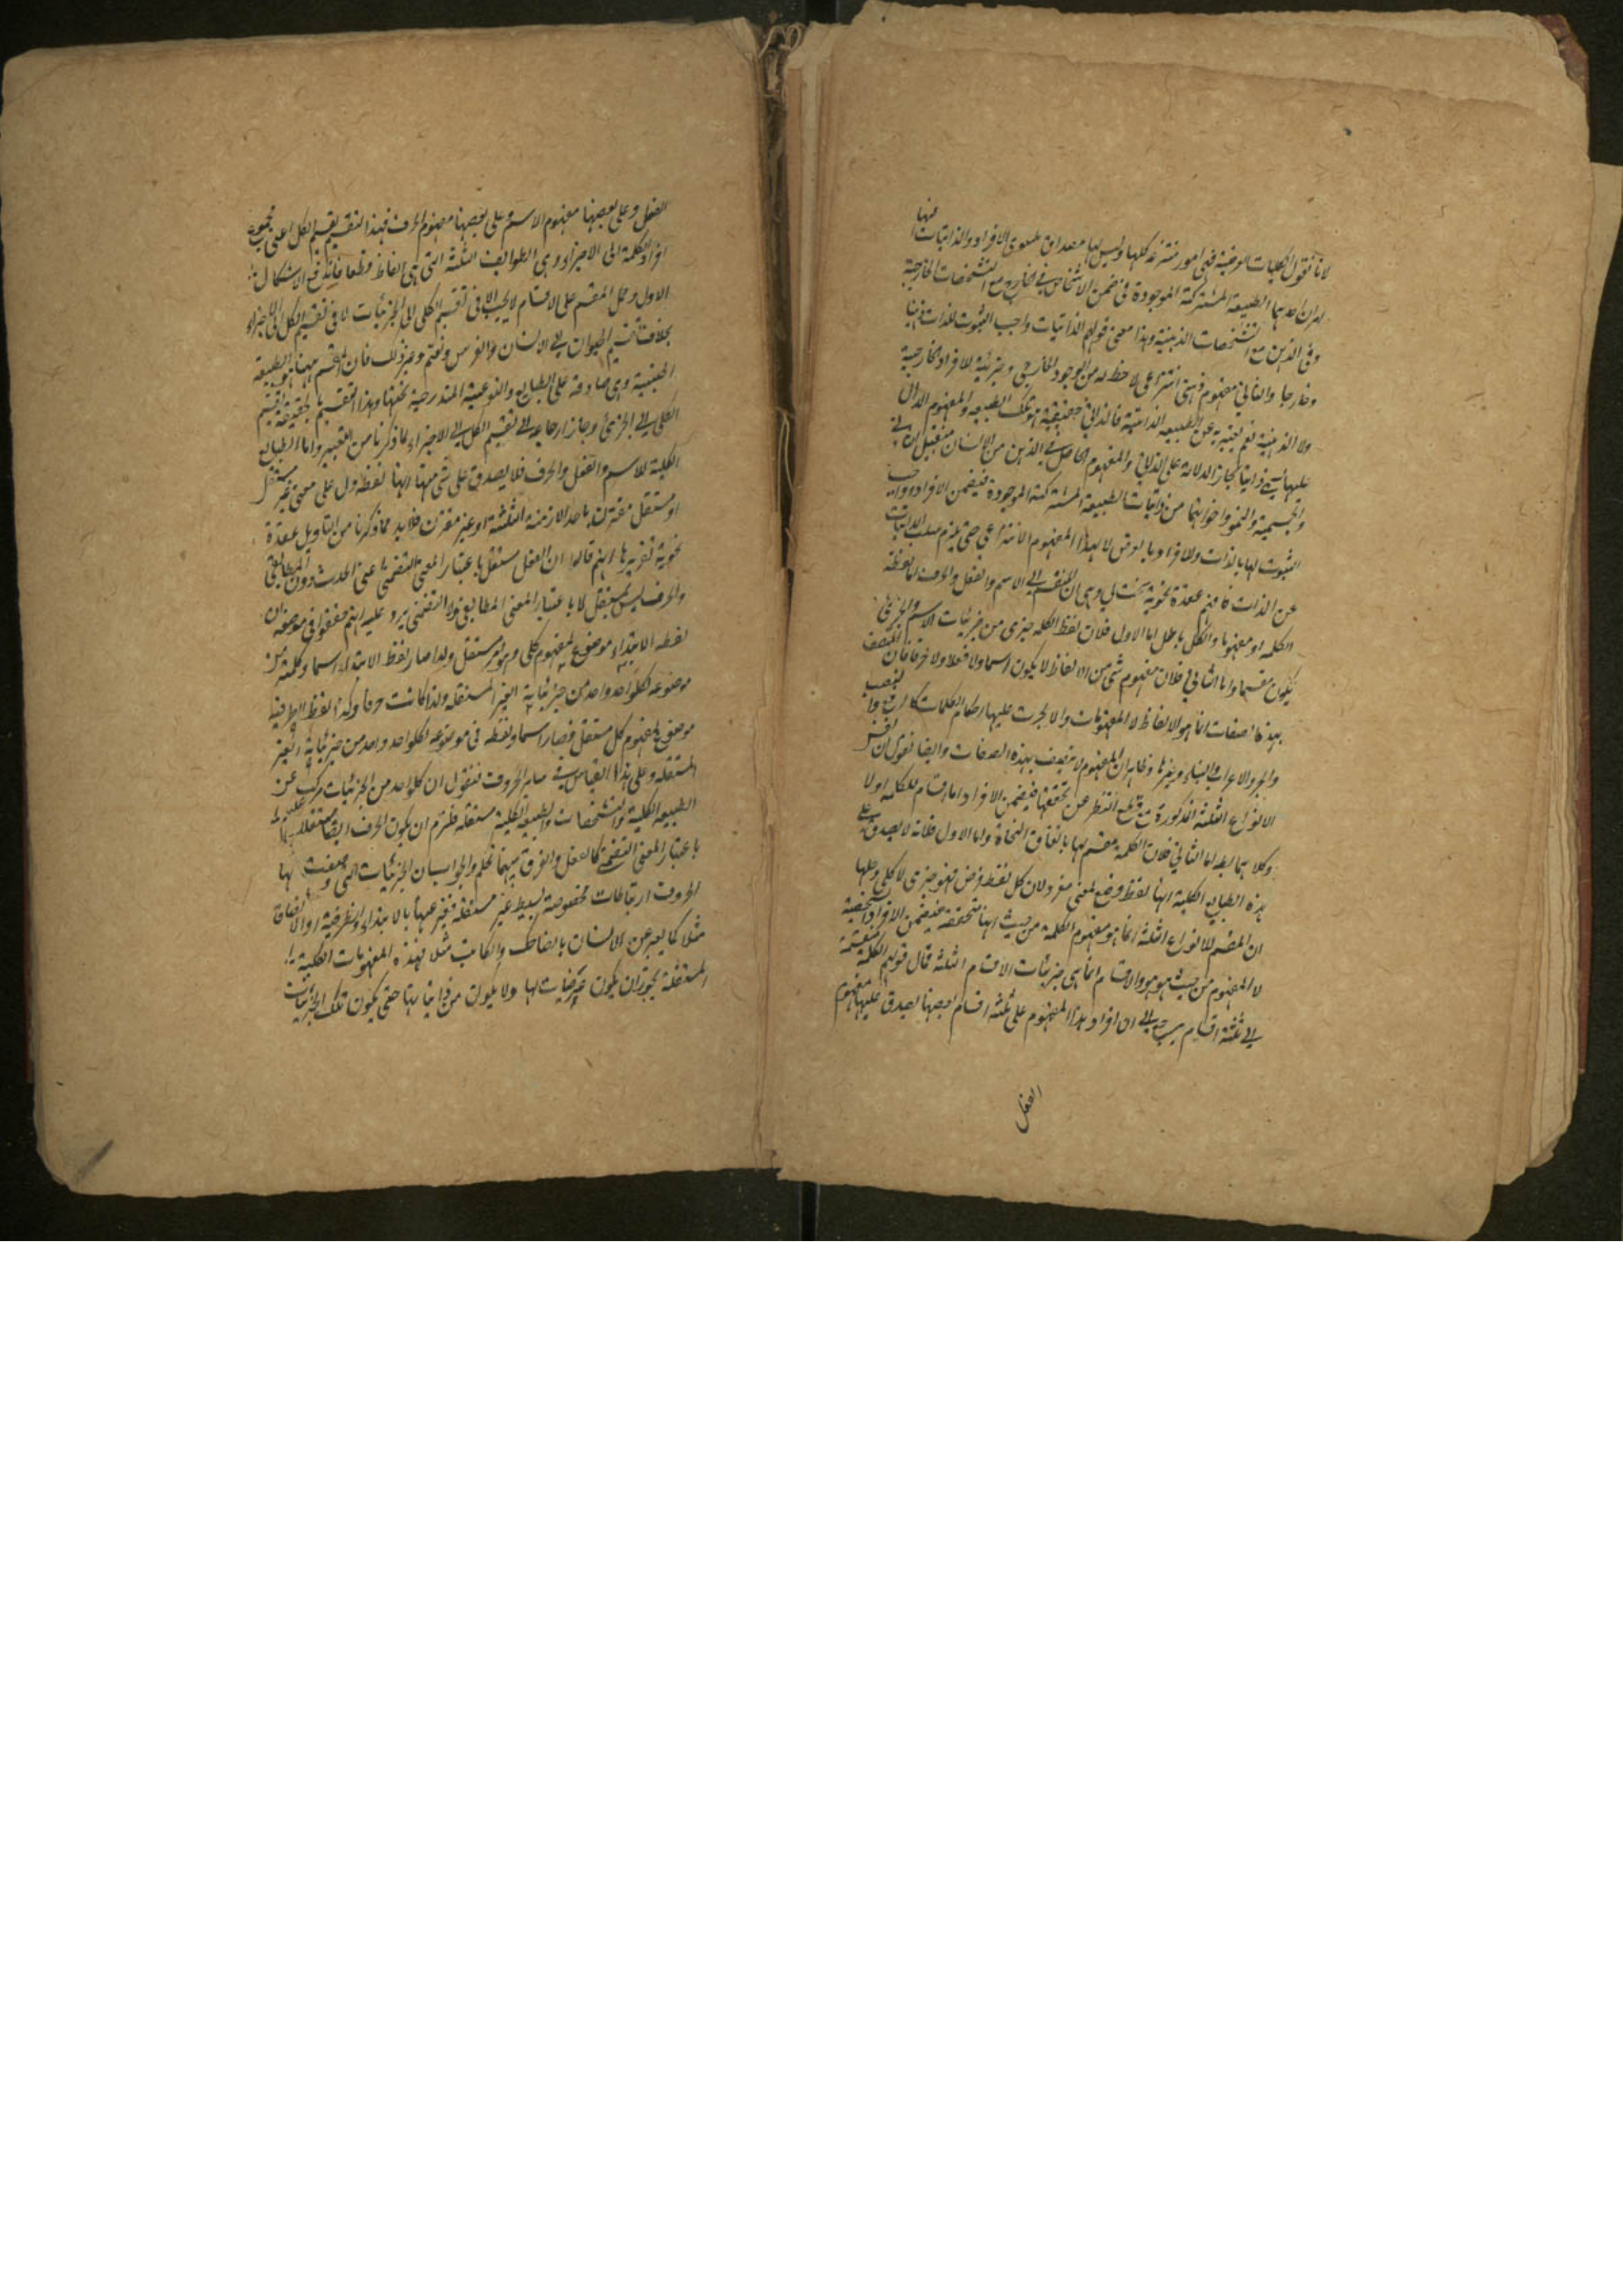 لانا نقول الكليات العرضية فهى امور منتزعة كلها وليس لها مصداق سوى الافراد والذاتيات منها
امران احدهما الطبيعة المشتركة الموجودة فى ضمن الاشخاص فى الخارج مع التشخصات الخارجية
وفى الذهن مع التشخصات الذهنية وهذا معنى قولهم الذاتيات واجب الثبوت للذات ذهنا
وخارجا والثانى مفهوم ذهنى انتزاعى لا حظ له من الوجود الخارجى وجزئية للافراد الخارجية
ولا الذهنية نعم يعتبر به عن الطبيعة الذاتية فالذاتى حقيقة هو تلك الطبيعة والمفهوم الدال
عليها سمى ذاتيا مجازا لدلالة على الذاتى والمفهوم الحاصل فى الذهن من الانسان من قبيل الثانى
والجسمية والنمو واخواتهما من ذاتيات الطبيعة المشتركة الموجودة فى ضمن الافراد واجب
الثبوت لها بالذات وللافراد بالعرض لا لهذا المفهوم الانتزاعى حتى يلزم سلب الذاتيات
عن الذات فافهم عقدة نحوية سنحت لى وهى ان المنقسم الى الاسم والفعل والحرف اما لفظة
الكلمة او مفهومها والكل باطل اما الاول فلان لفظ الكلمة جزئى من جزئيات الاسم والجزئى
يكون مقسما واما الثانى فلان مفهوم شئ من الالفاظ لا يكون اسما ولا فعلا ولا حرفا فان المتصف
بهذه الصفات انما هو الالفاظ لا المفهومات والا لجرت عليها احكام الكلمات كالرفع والنصب
والجر والاعراب والبناء وغيرها وظاهر ان المفهوم لا يتصف بهذه الصفات وايضا نقول ان نفس
الانواع الثلثة المذكورة مع قطع النظر عن تحققها فى ضمن الافراد اما اقسام للكلمة او لا
وكلاهما باطل اما الثانى فلان الكلمة مقسم لها باتفاق النحاة واما الاول فلانه لا يصدق على
هذه الطبايع الكلية انها لفظ وضع لمعنى مفرد لان كل لفظ فرض فهو جزئى لا كلى وحلها
ان المقسم للانواع الثلثة انما هو مفهوم الكلمة من حيث انها متحققة فى ضمن الافراد الشخصية
لا المفهوم من حيث هو هو والاقسام انما هى جزئيات الاقسام الثلثة فمال قولهم الكلمة منقسمة
الى ثلثة اقسام يرجع الى ان افراد هذا المفهوم على ثلثة اقسام بعضها يصدق عليها مفهوم
الفعل
الفعل وعلى بعضها مفهوم الاسم وعلى بعضها مفهوم الحرف فهذا التقسيم تقسيم الكل اعنى مجموع
افراد الكلمة الى الاجزاء وهى الطوايف الثلثة التى هى الفاظ قطعا فاندفع الاشكال
الاول وحمل المقسم على الاقسام لا يجب الا فى تقسيم الكلى الى الجزئيات لا فى تقسيم الكل الى الاجزاء
بخلاف تقسيم الحيوان الى الانسان والفرس والغنم وغير ذلك فان المقسم ههنا هو الطبيعة
الجنسية وهى صادقة على الطبايع النوعية المندرجة تحتها وهذا التقسيم بالحقيقة تقسيم
الكلى الى الجزئى وجاز ارجاعه الى تقسيم الكل الى الاجزاء لما ذكرنا من التعبير واما الطبايع
الكلية للاسم والفعل والحرف فلا يصدق على شئ منها انها لفظ دل على معنى غير مستقل
او مستقل مقترن باحد الازمنة الثلثة او غير مقترن فلابد مما ذكرنا من التاويل عقدة
نحوية تقريرها انهم قالوا ان الفعل مستقل باعتبار المعنى التضمنى اعنى الحدث دون المطابقى
والحرف ليس بمستقل لا باعتبار المعنى المطابقى ولا التضمنى يرد عليه انهم حققوا فى موضعه ان
لفظة الابتداء موضوع لمفهوم كلى وهو مستقل ولذا صار لفظ الابتداء اسما وكلمة من
موضوعه لكل واحد واحد من جزئياته الغير المستقلة ولذا كانت حرفا وكذا لفظ الظرفية
موضوع لمفهوم كلى مستقل فصار اسما ولفظة فى موضوعه لكل واحد واحد من جزئياته الغير
المستقلة وعلى هذا القياس ساير الحروف فنقول ان كل واحد من الجزئيات مركب عن
الطبيعة الكلية والتشخصات والطبيعة الكلية مستقلة فلزم ان يكون الحرف ايضا مستقلا
باعتبار المعنى التضمنى كالفعل والفرق بينهما تحكم والجواب ان الجزئيات التى وضعت لها
الحروف ارتباطات مخصوصة بسيط غير مستقلة يعبر عنها بالابتداء والظرفية والالصاق
مثلا كما يعبر عن الانسان بالضاحك والكاتب مثلا فهذه المفهومات الكلية
المستقلة يجوز ان يكون عرضيات لها ولا يكون من ذاتياتها حتى يكون تلك الجزئيات